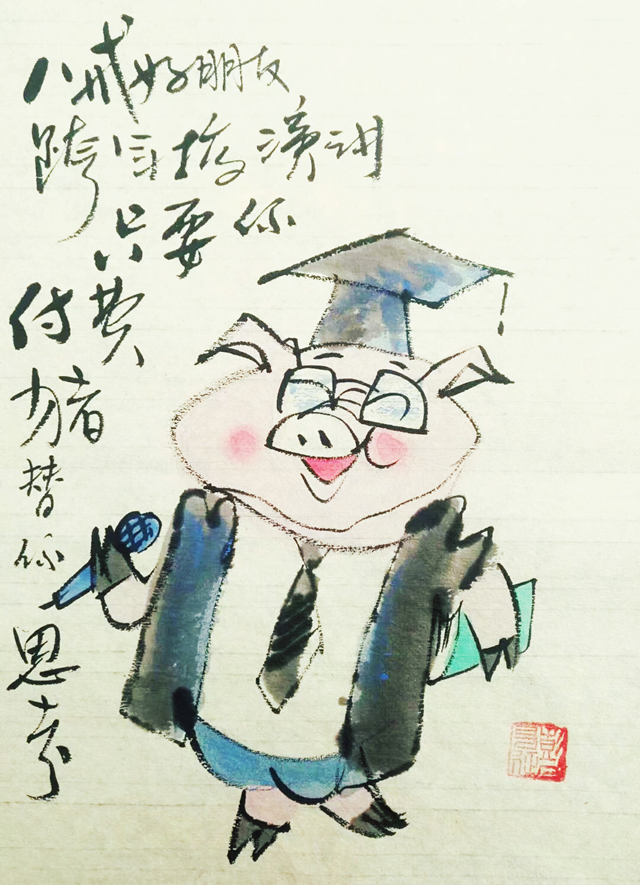 八戒好朋友
跨年搞演讲
只要你
付费
猪
替
你
思
考